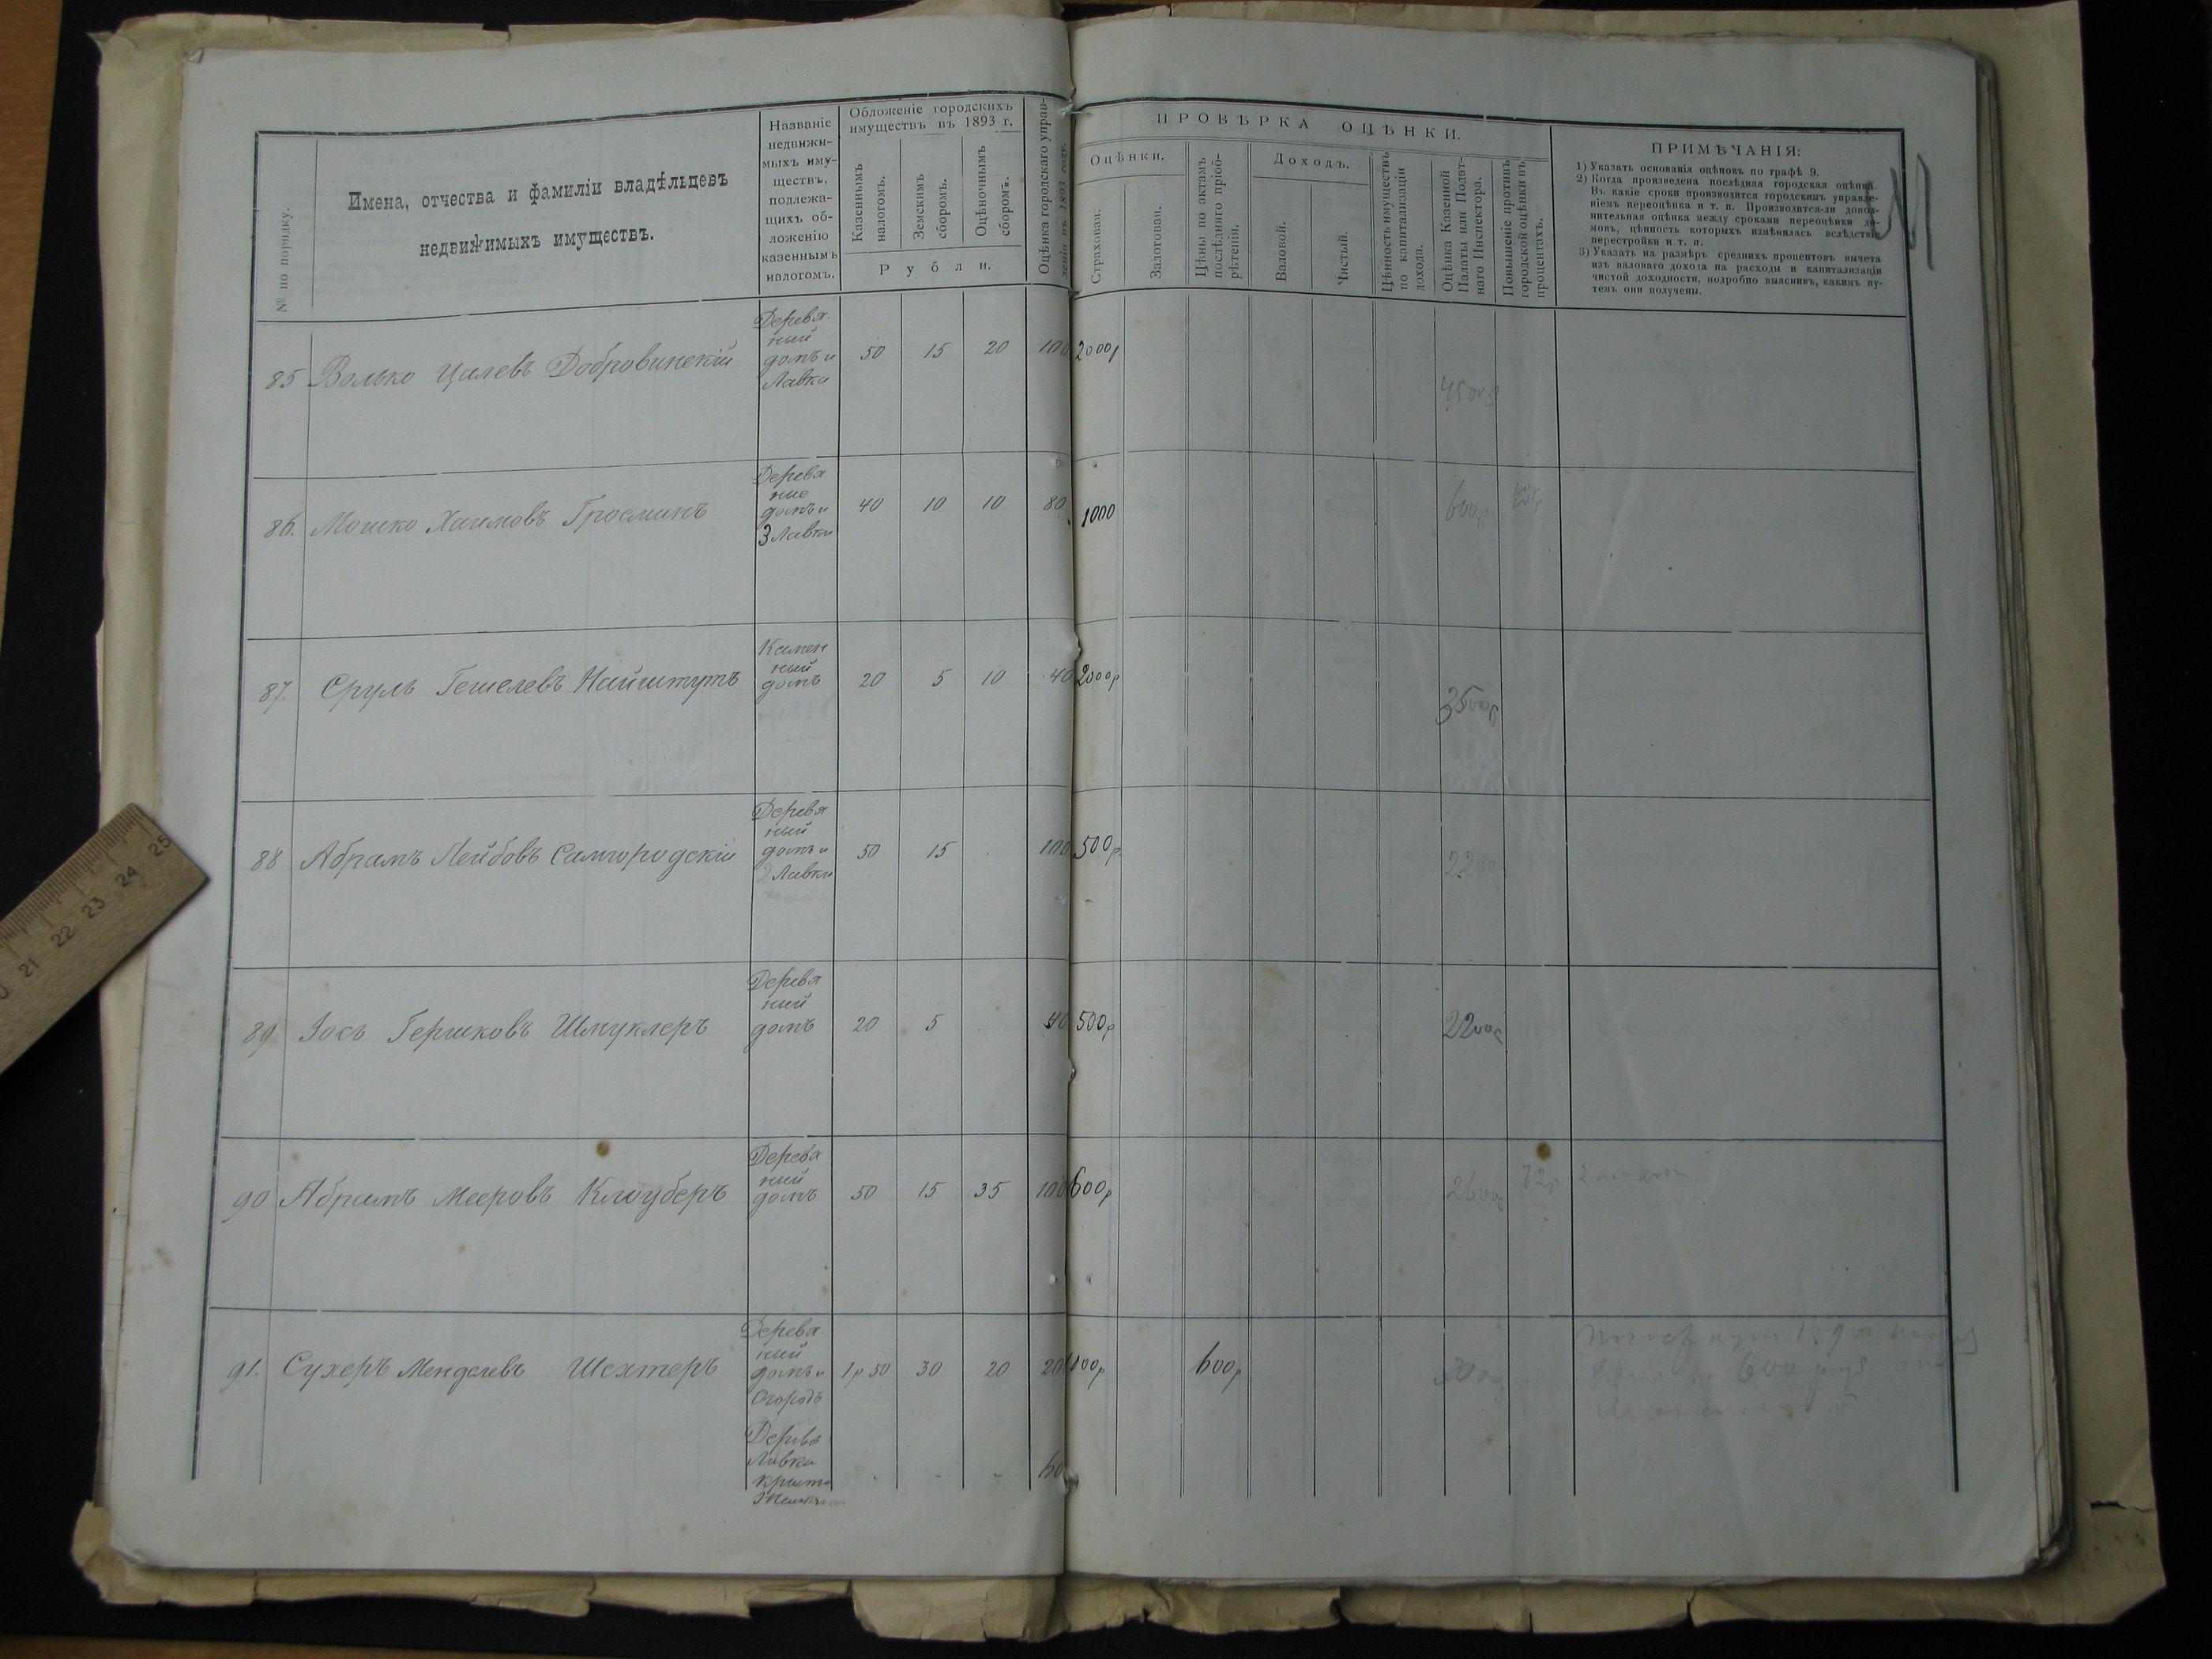 № по порядку.
Имена, отчества и фамиліи владѣльцевъ
недвижимыхъ имуществъ.
Названіе
недвижи-
мыхъ иму-
ществъ,
подлежа-
щихъ об-
ложенію
казеннымъ
налогомъ.
Обложеніе городскихъ
имуществъ въ 1893 г.
Казеннымъ
налогомъ.
Земскимъ
сборомъ.
Оцѣночнымъ
сборомъ.
Рубли.
Оцѣнка городскаго управ-
ленія въ 1893 году.
ПРОВѢРКА ОЦѢНКИ.
Оцѣнки.
Страховая.
Залоговая.
Цѣны по актамъ
послѣдняго пріоб-
рѣтенія.
Доходъ.
Валовой.
Чистый.
Цѣнность имуществъ
по капитализаціи
дохода.
Оцѣнка Казенной
Палаты или Подат-
наго Инспектора.
Повышеніе противъ
городской оцѣнки въ
процентахъ.
ПРИМѢЧАНІЯ:
1) Указать основанія оцѣнокъ по графѣ 9.
2) Когда произведена послѣдняя городская оцѣнка.
Въ какіе сроки производится городскимъ управле-
ніемъ переоцѣнка и т. п. Производится-ли допол-
нительная оцѣнка между сроками переоцѣнки до-
мовъ, цѣнность которыхъ измѣнилась вслѣдствіе
перестройки и т. п.
3) Указать на размѣръ среднихъ процентовъ вычета
изъ валоваго дохота на расходы и капитализаціи
чистой доходности, подробно выяснивъ, какимъ пу-
темъ они получены.
85 Волько Цалевъ Добровинскій
Деревя
ный
домъ и
Лавка
50 15 20 100 2000р
4500р
86. Мошко Хаимовъ Гросманъ
Деревя
ные
домъ и
3 Лавки
40 10 10 80 1000
600р
87. Сруль Гешелевъ Найштутъ
Камен
ный
домъ
20 5 10 40 2000р
3500р
88 Абрамъ Лейбовъ Самгородскій
Деревя
ный
домъ и
2 Лавки
50 15 . 100 500р
2200р
89 Іось Гершковъ Шмуклеръ
Деревя
ный
домъ
20 5 . 40 500р
2200р
90 Абрамъ Мееровъ Клоуберъ
Деревя
ный
домъ
50 15 35 100 600р
2600р 72р
91. Сухеръ Менделевъ Шехтеръ
Деревя
ный
домъ и
Огородъ
1р 50 30 20 600р
Дерева
Лавка
крыта
- - - 60
600 руб
21 22 23 24 25